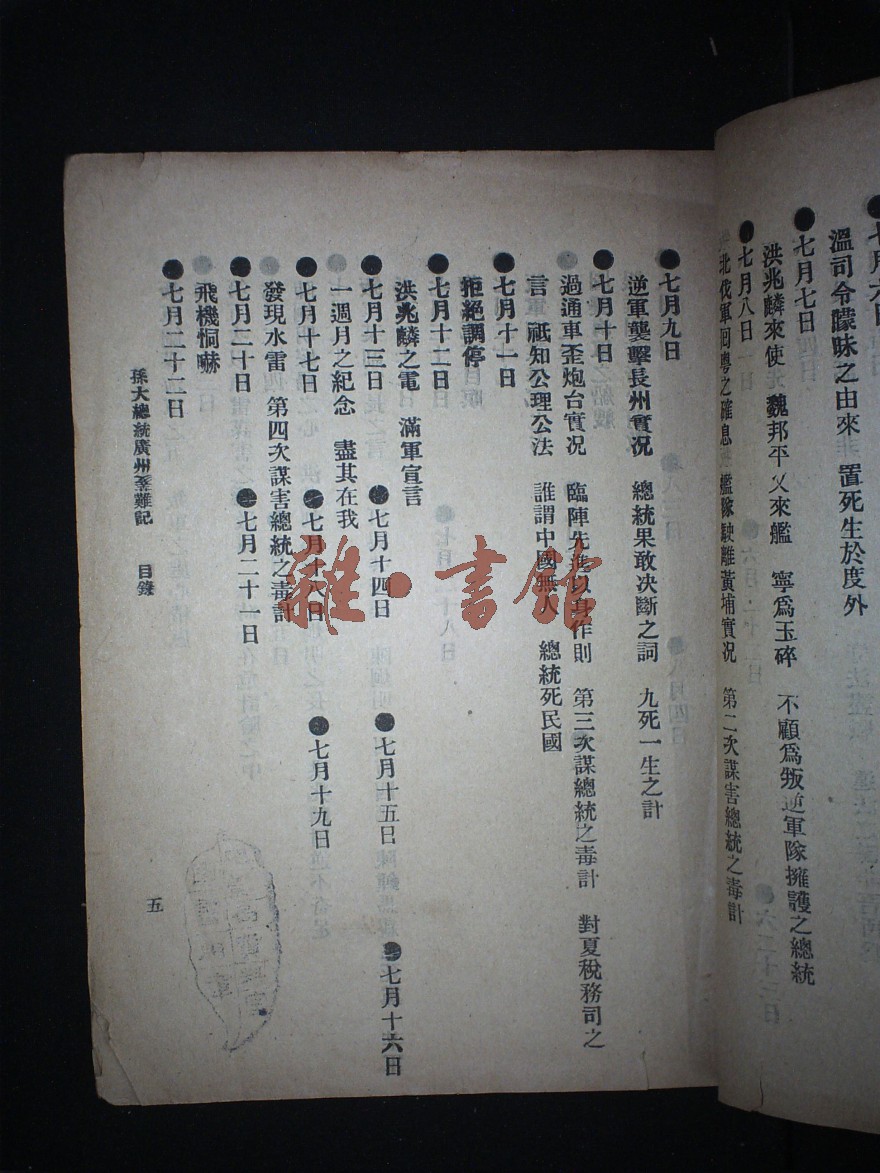 七月六日
溫司令朦昧之由來 置死生於度外
七月七日
洪兆麟來使 魏邦平又來艦 寧爲玉碎 不顧爲叛逆軍隊擁護之總統
七月八日
北伐軍囘粵之確息 艦隊駛離黃埔實况 第二次謀害總統之毒計
七月九日
逆軍襲擊長州實况 總統果敢决斷之詞 九死一生之計
七月十日
過通車歪炮台實况 臨陣先進以身作則 第三次謀總統之毒計 對夏稅務司之
言 祗知公理公法 誰謂中國無人 總統死民國
七月十一日
拒絕調停
七月十二日
洪兆麟之電 滿軍宣言
七月十三日 七月十四日 七月十五日 七月十六日
一週月之紀念 盡其在我
七月十七日 七月十八日 七月十九日
發現水雷 第四次謀害總統之毒計
七月二十日 七月二十一日
飛機恫嚇
七月二十二日
孫大總統廣州蒙難記 目錄
五
雜·書館